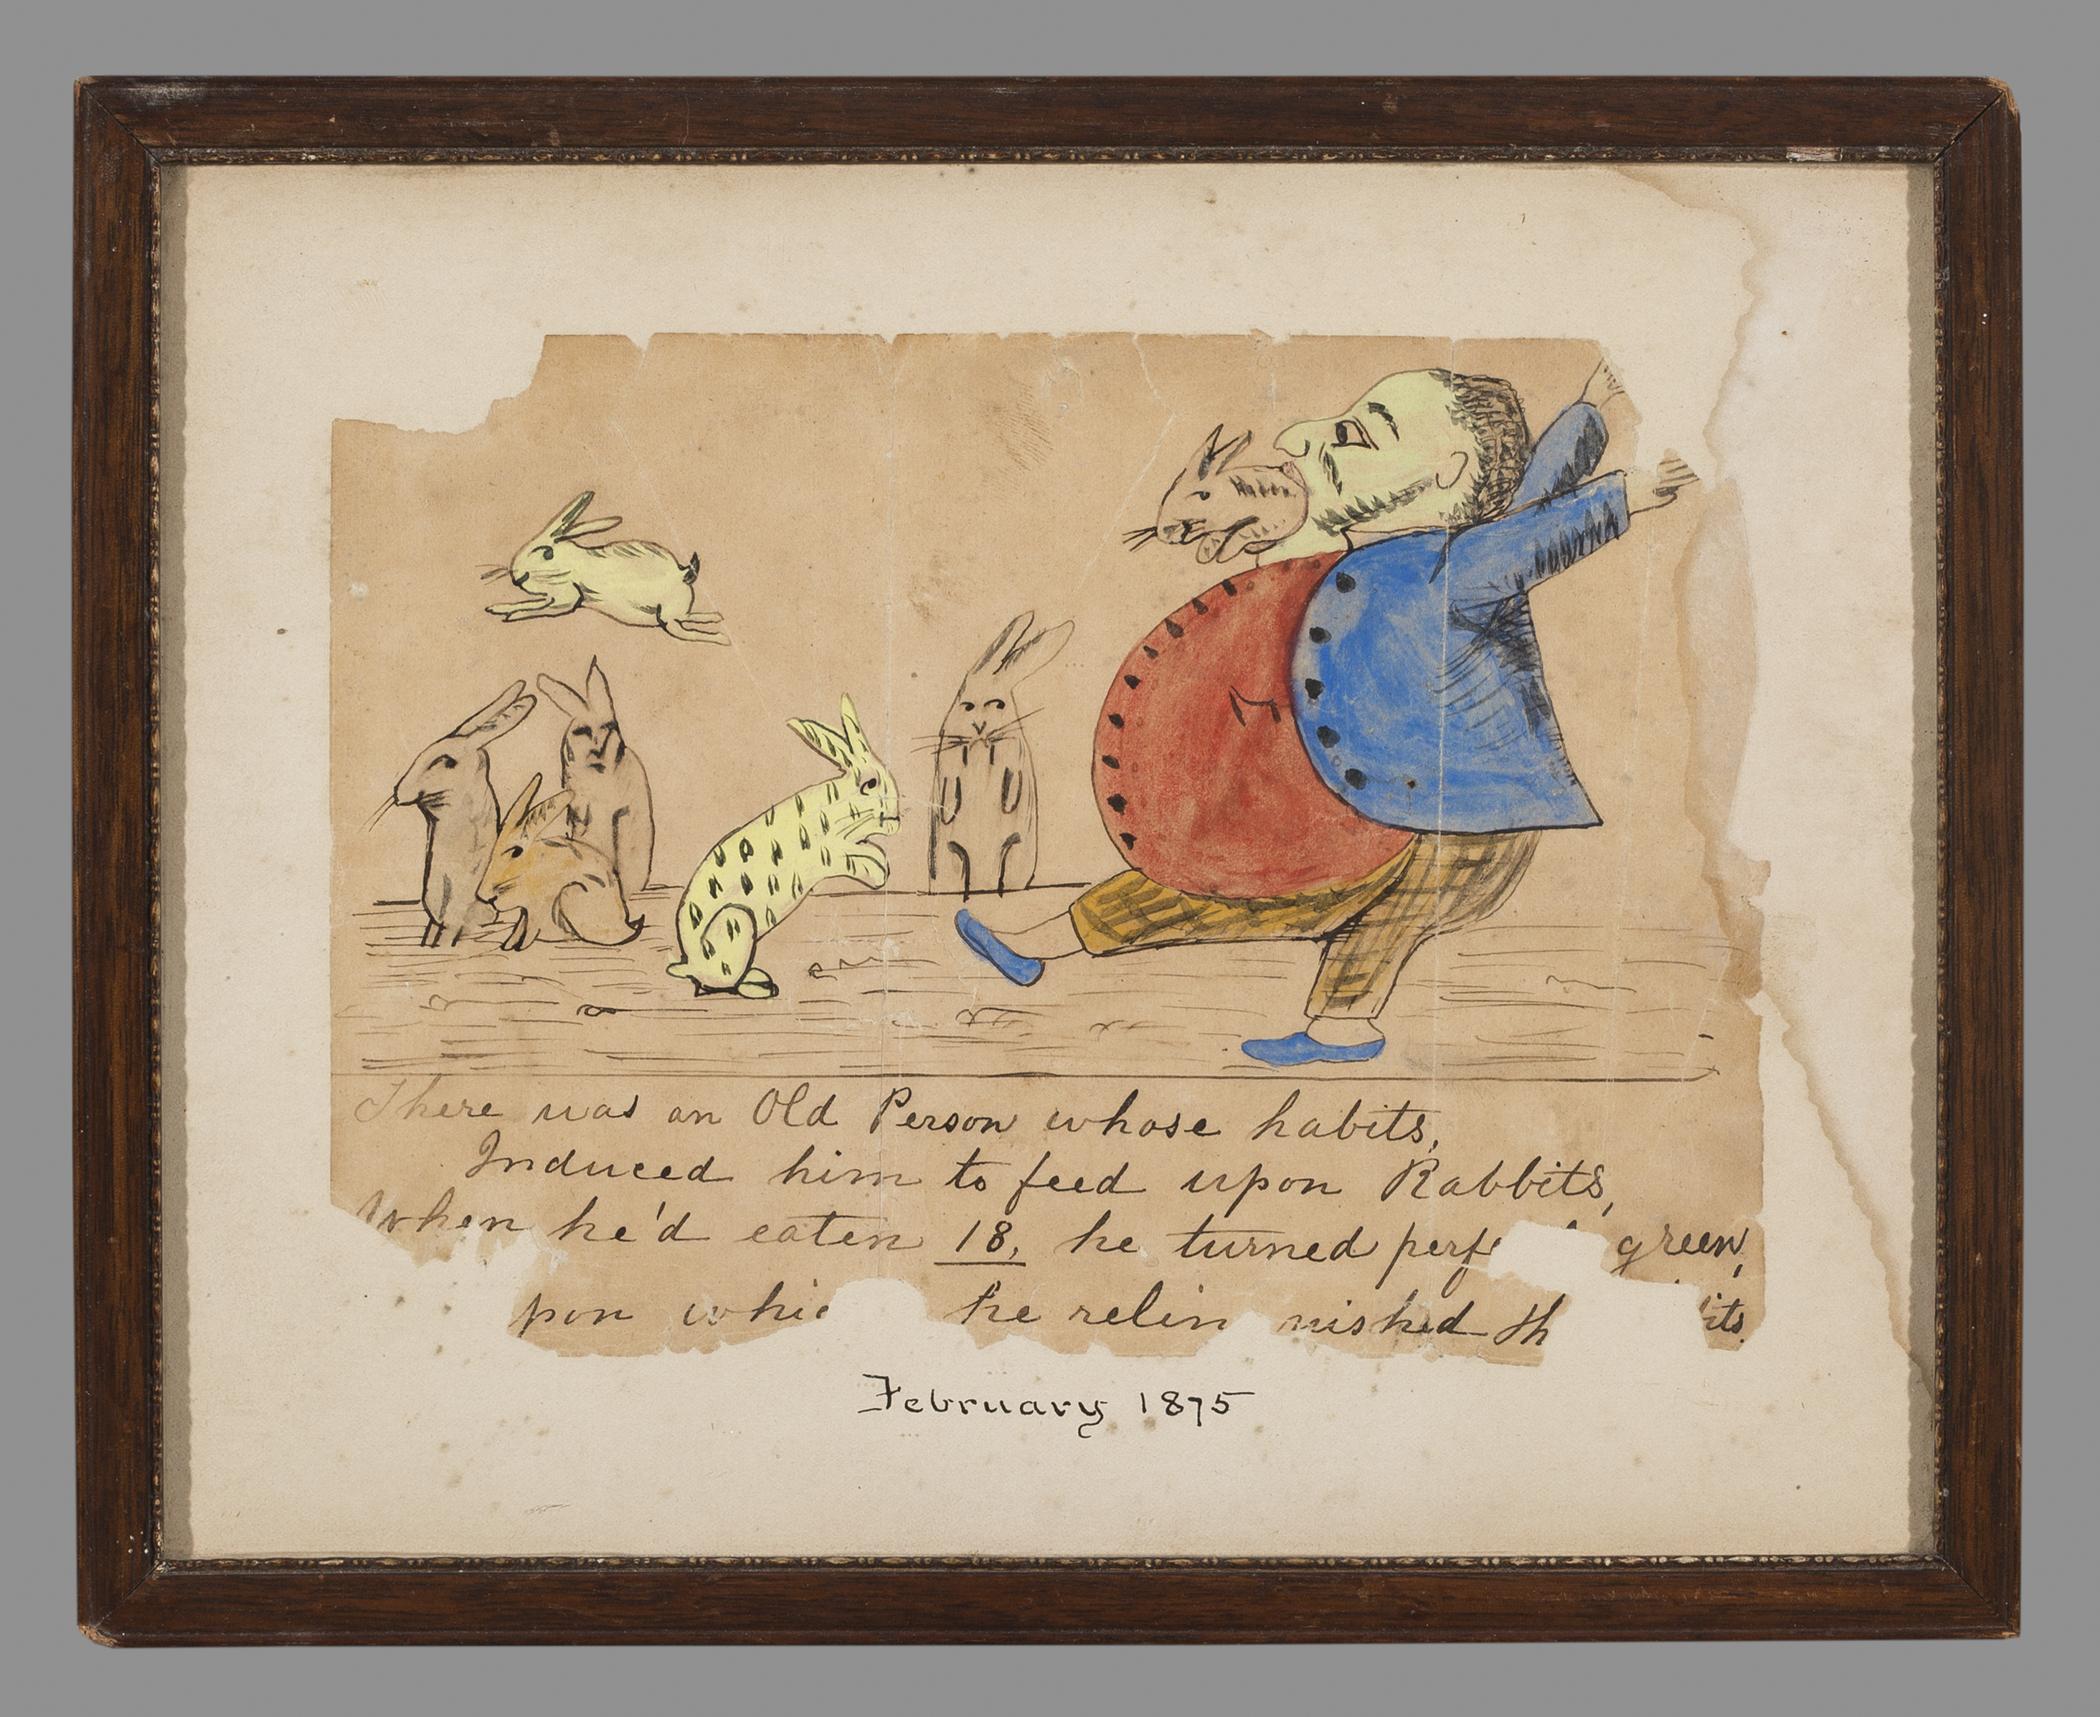 There was an Old Person whose habits,
Induced him to feed upon Rabbits,
When he'd eaten 18, he turned perf green,
pon whic he relin nished th its.
February 1875